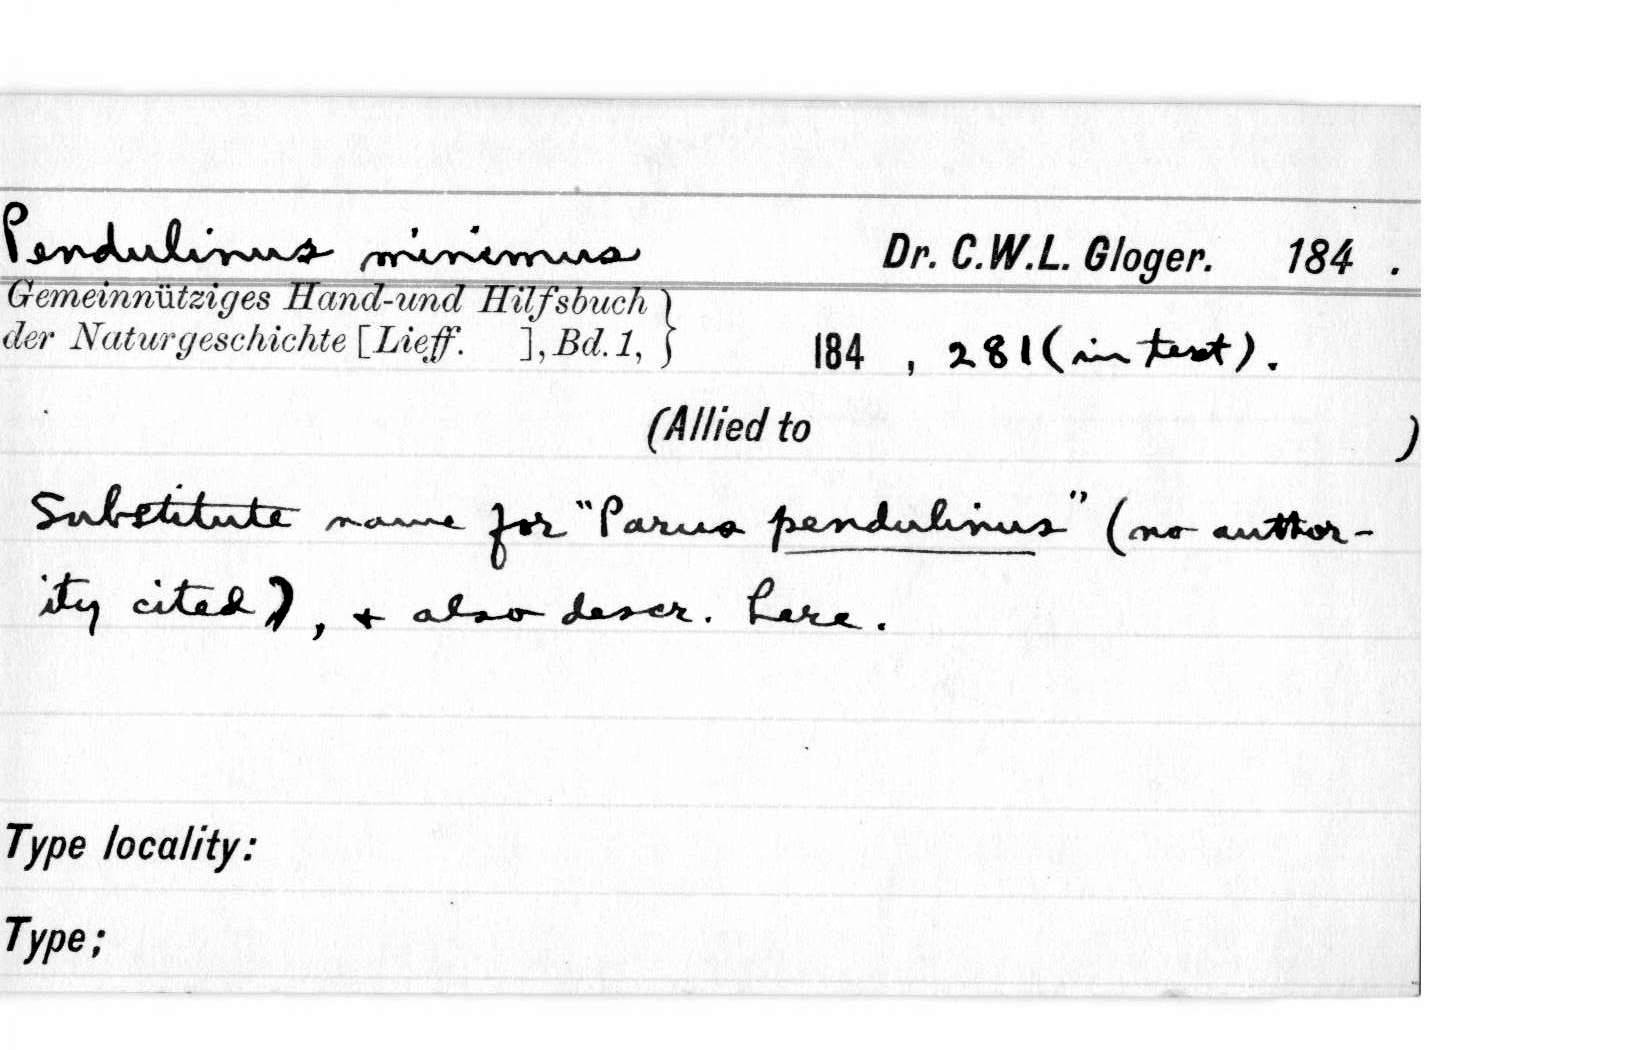 Pendulinus minimus Dr. C.W.L. Gloger. 184 .
Gemeinnütziges Hand-und Hilfsbuch
der Naturgeschichte [Lieff. ], Bd. 1, } 184 , 281 (in text).
(Allied to )
Substitute name for "Parus pendulinus" (no author-
ity cited), + also descr. here.
Type locality:
Type;